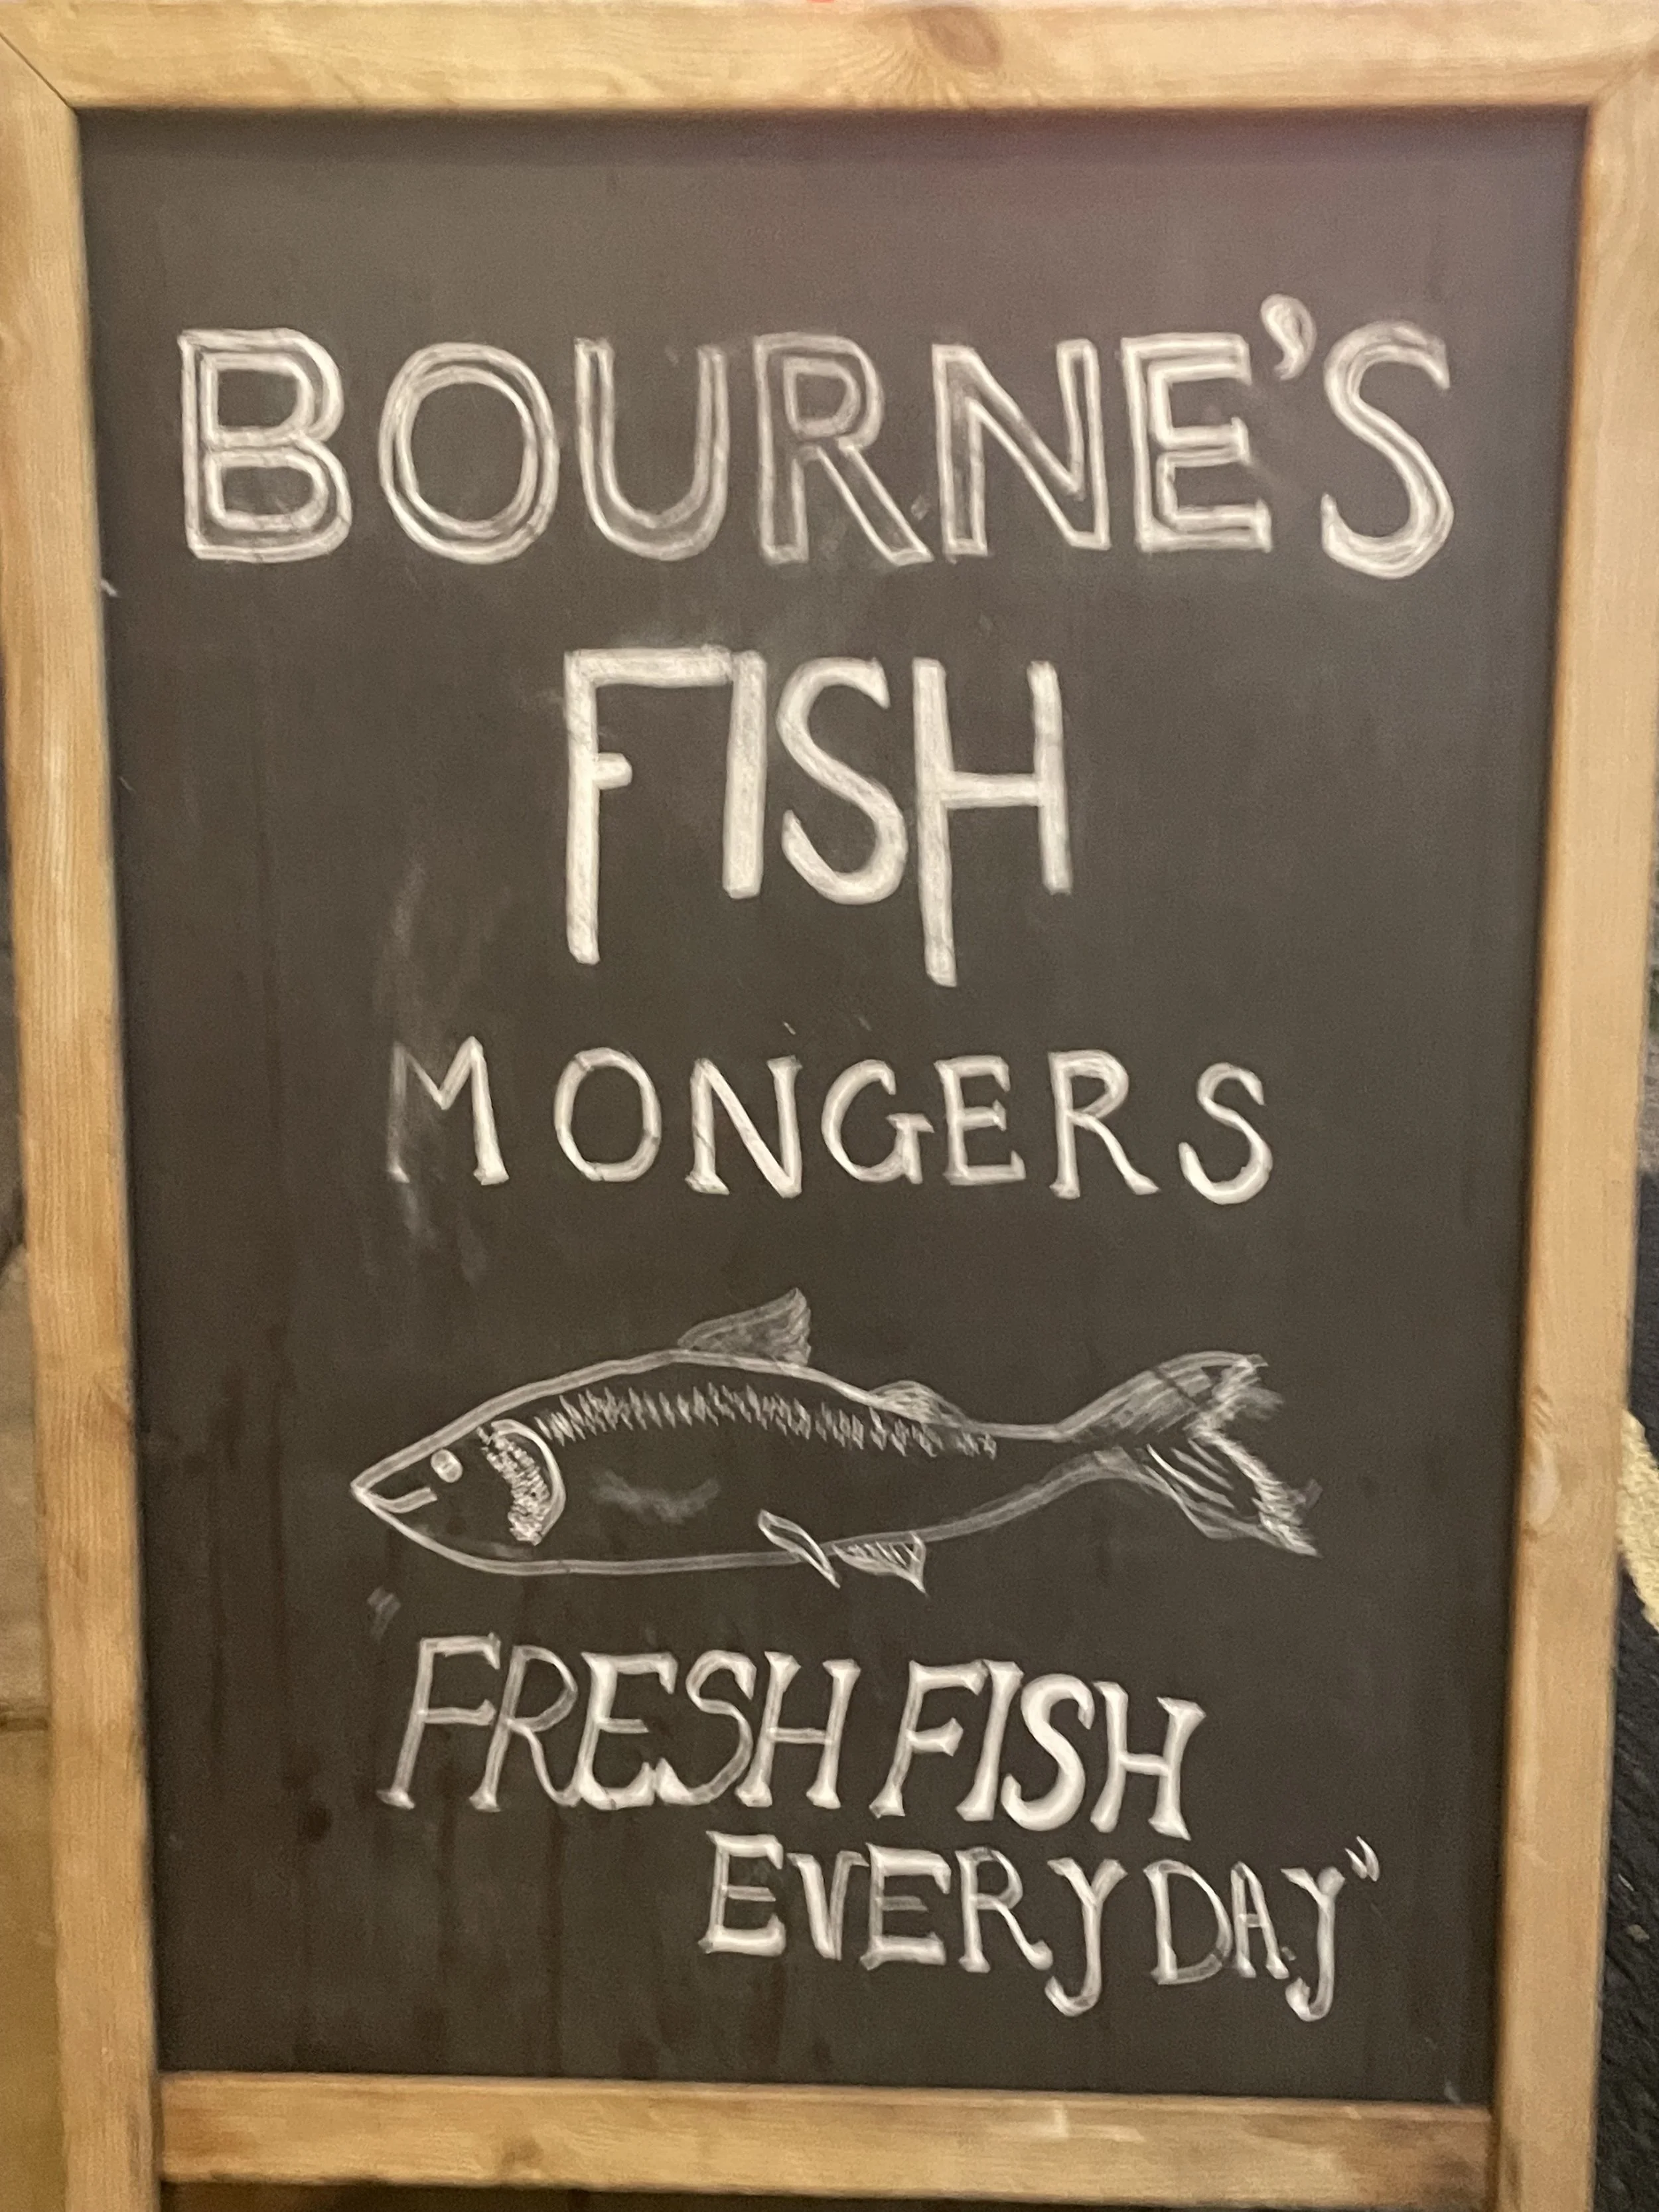 BOURNE'S
FISH
MONGERS
FRESH FISH
EVERYDAY"